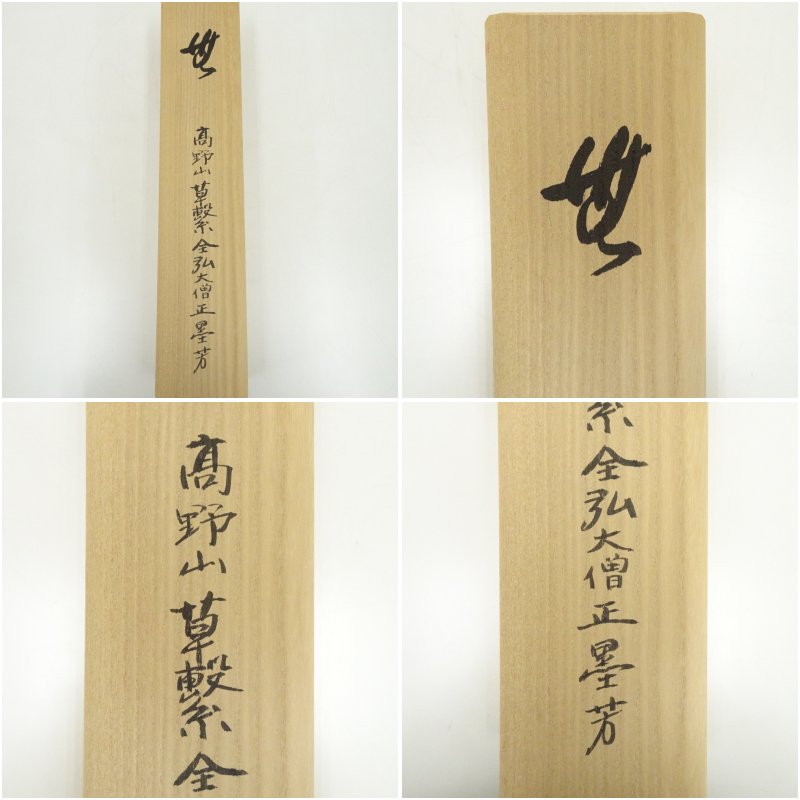 無
髙野山草繋全弘大僧正墨芳
無
髙野山草繋全
全弘大僧正墨芳